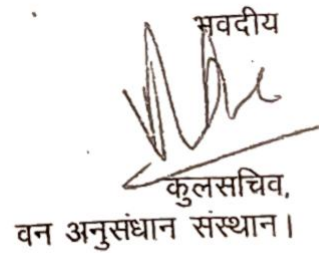 भवदीय
कुलसचिव,
वन अनुसंधान संस्थान।